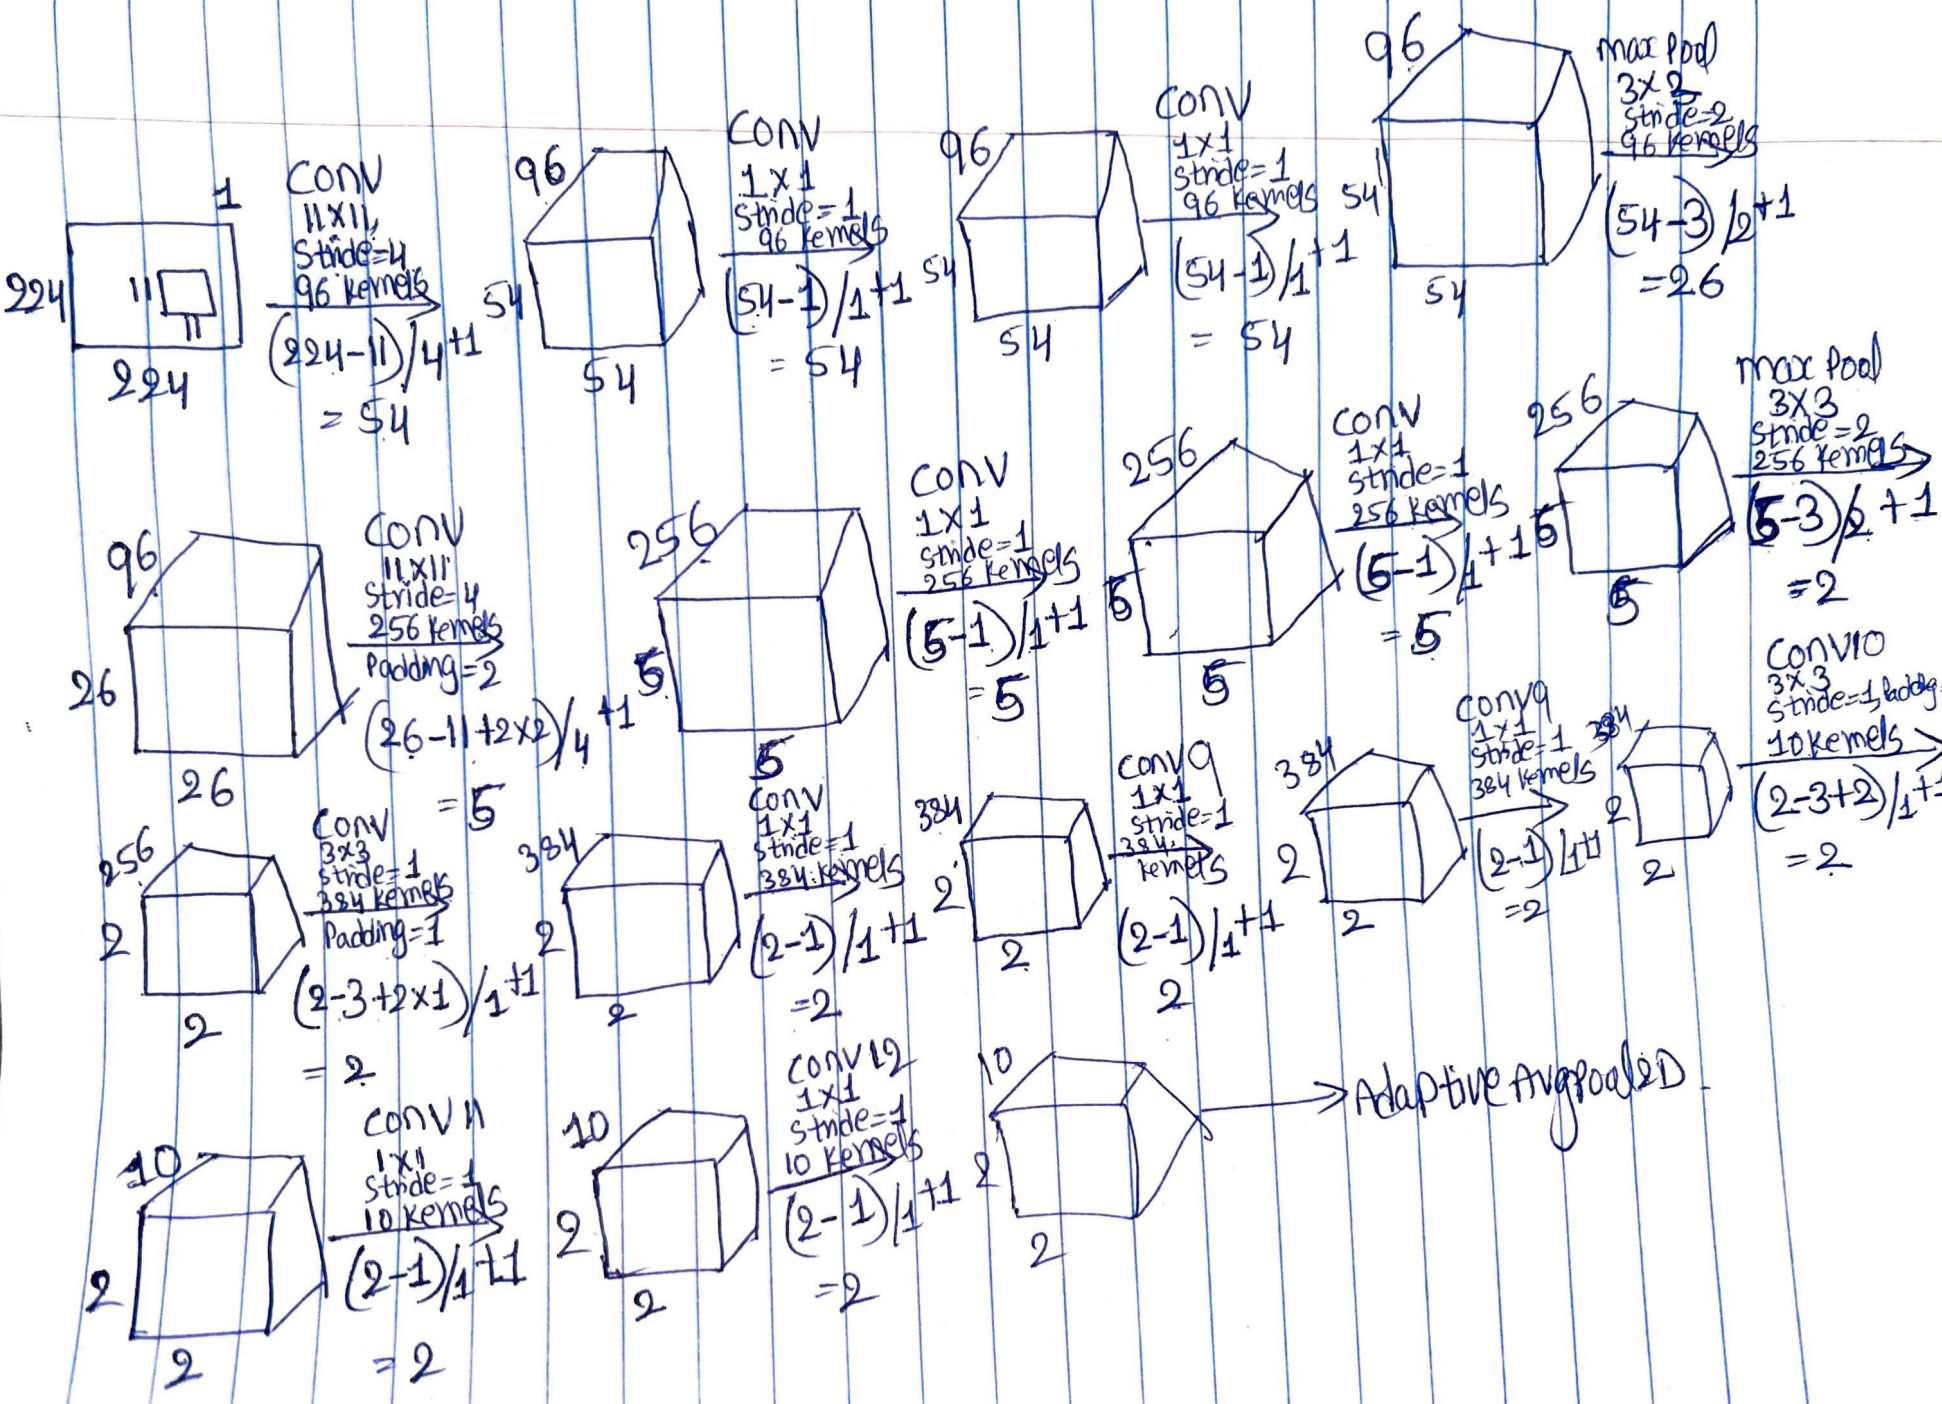 1
224
11
11
224
CONV
11X11,
Stride=4
96 Kernels
(224-11)/4+1
= 54
96
54
54
CONV
1X1
Stride=1
96 Kernels
(54-1)/1+1
= 54
96
54
54
CONV
1X1
Stride=1
96 Kernels
(54-1)/1+1
= 54
96
54
54
max Pool
3X3
Stride=2
96 Kernels
(54-3)/2+1
=26
96
26
26
CONV
11X11
Stride=4
256 Kernels
Padding=2
(26-11+2x2)/4+1
= 5
256
5
5
CONV
1X1
Stride=1
256 Kernels
(5-1)/1+1
= 5
256
5
5
CONV
1X1
Stride=1
256 Kernels
(5-1)/1+1
= 5
256
5
5
max Pool
3X3
Stride=2
256 Kernels
(5-3)/2+1
=2
256
2
2
CONV
3X3
Stride=1
384 Kernels
Padding=1
(2-3+2x1)/1+1
= 2
384
2
2
CONV
1X1
Stride=1
384 Kernels
(2-1)/1+1
=2
384
2
2
CONV9
1X1
Stride=1
384
Kernels
(2-1)/1+1
2
384
2
2
CONV9
1X1
Stride=1
384 Kernels
(2-1)/1+1
=2
384
2
2
CONV10
3X3
Stride=1,
10 Kernels
(2-3+2)/1+1
=2
10
2
2
CONV11
1X1
Stride=1
10 Kernels
(2-1)/1+1
= 2
10
2
2
CONV12
1X1
Stride=1
10 Kernels
(2-1)/1+1
=2
10
2
2
Adaptive Avgpool2D